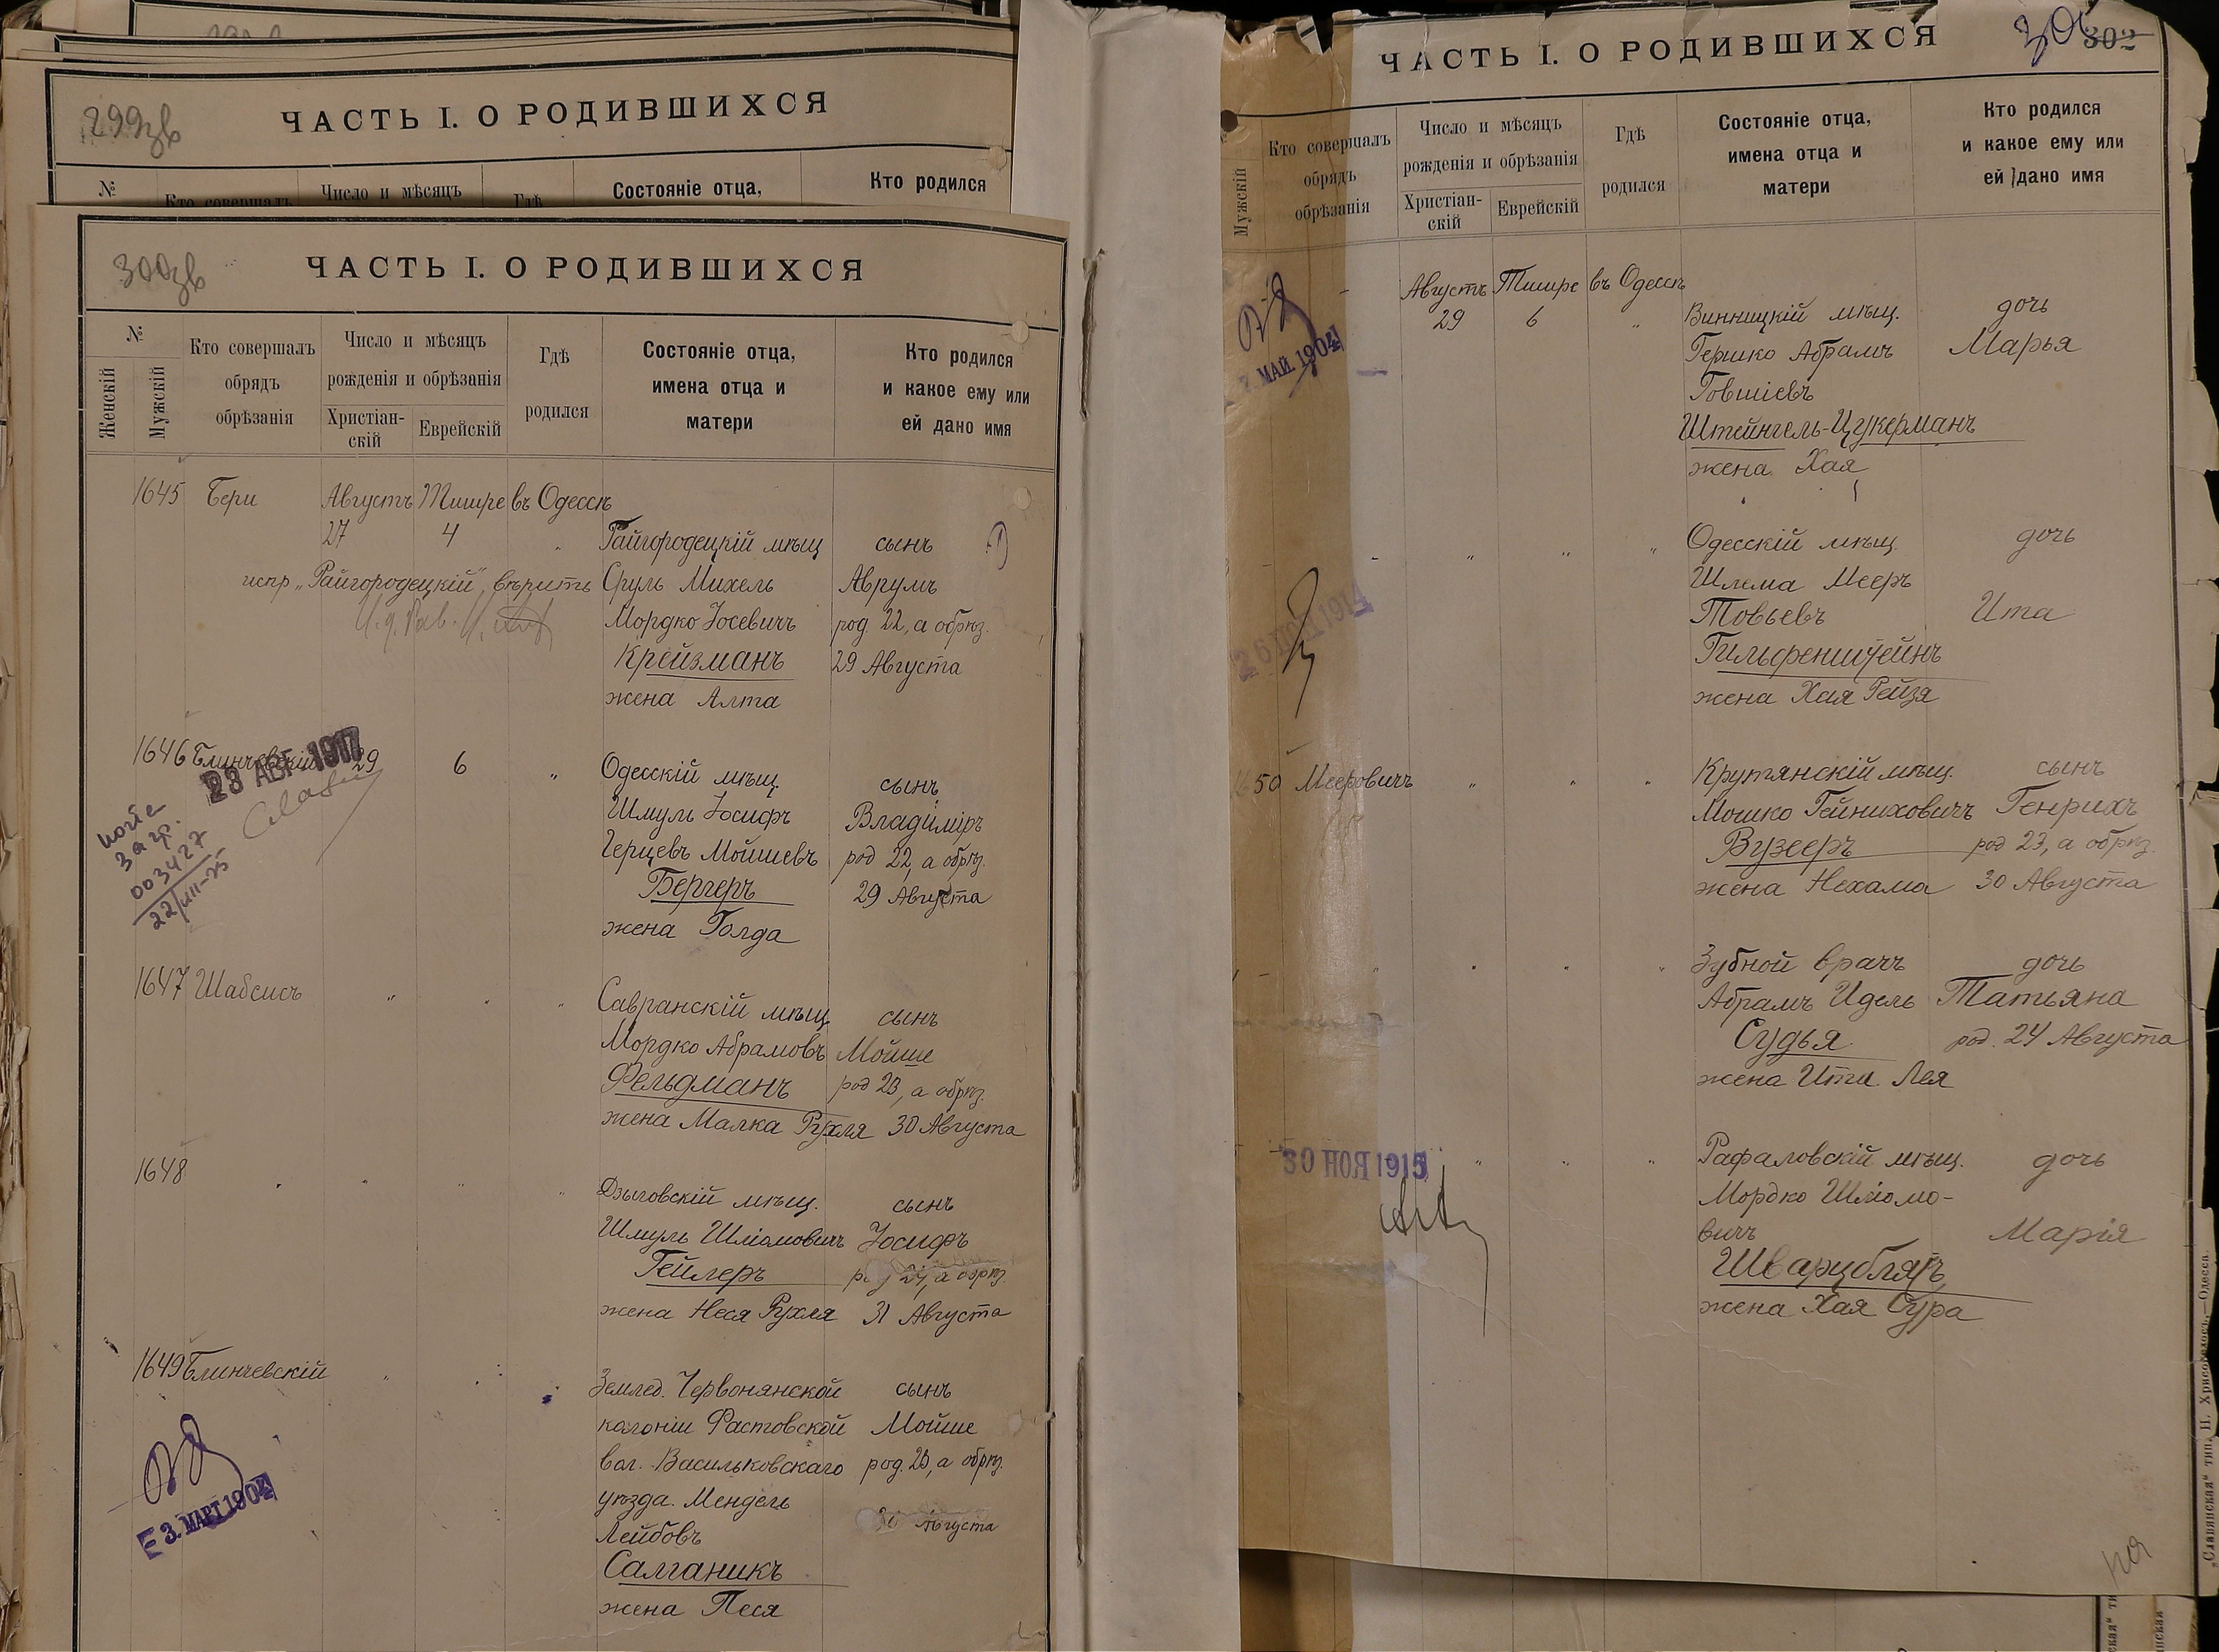 299зв
ЧАСТЬ I. О РОДИВШИХСЯ
№
Кто совершалъ
Число и мѣсяцъ
Гдѣ
Состояніе отца,
Кто родился
300зв
ЧАСТЬ I. О РОДИВШИХСЯ
№
Женскій
Мужскій
Кто совершалъ
обрядъ
обрѣзанія
Число и мѣсяцъ
рожденія и обрѣзанія
Христіан-
скій
Еврейскій
Гдѣ
родился
Состояніе отца,
имена отца и
матери
Кто родился
и какое ему или
ей дано имя
1645 Бери Августъ Тишре въ Одессѣ
27 4 Райгородецкій мѣщ сынъ
испр „Райгородецкій" вѣрить Сруль Михель Аврумъ
Мордко Іосевичъ род. 22, а обрѣз.
Крейзманъ 29 Августа
жена Алта
1646 Блинчевскій 29 6 „ Одесскій мѣщ. сынъ
23 АВГ 1917
Шмуль Іосифъ Владиміръ
Герцевъ Мойшевъ род 22, а обрѣз.
Бергеръ 29 Августа
жена Голда
копіе
загр.
003427
22/VIII-25
1647 Шабсисъ „ „ „ Савранскій мѣщ сынъ
Мордко Абрамовъ Мойше
Фельдманъ род 23, а обрѣз.
жена Малка Рухля 30 Августа
1648 „ „ „ „ Дзыговскій мѣщ. сынъ
Шмуль Шліомовичъ Іосифъ
Гейлеръ род 24, а обрѣз.
жена Неся Рухля 31 Августа
1649 Блинчевскій „ „ „ Землед. Червонянской сынъ
колоніи Фастовской Мойше
вол. Васильковскаго род. 23, а обрѣз.
уѣзда. Мендель 30 Августа
Лейбовъ
Салганикъ
жена Песя
3. МАРТ 1904
ЧАСТЬ I. О РОДИВШИХСЯ
302
Мужскій
Кто совершалъ
обрядъ
обрѣзанія
Число и мѣсяцъ
рожденія и обрѣзанія
Христіан-
скій
Еврейскій
Гдѣ
родился
Состояніе отца,
имена отца и
матери
Кто родился
и какое ему или
ей дано имя
Августъ Тишре въ Одессѣ
29 6 „ Винницкій мѣщ. дочь
Гершко Абрамъ Марья
Говшіевъ
Штейнгель-Цукерманъ
жена Хая
МАЙ 1904
„ „ „ Одесскій мѣщ. дочь
Шлема Мееръ
Товьевъ Ита
Гильфенштейнъ
жена Хая Рейзя
1914
50 Мееровичъ „ „ „ Крутянскій мѣщ. сынъ
Мошко Гейниховичъ Генрихъ
Вузееръ род 23, а обрѣз.
жена Нехама 30 Августа
„ „ „ „ Зубной врачъ дочь
Абрамъ Идель Татьяна
Судья род. 24 Августа
жена Ита Лея
30 НОЯ 1915
„ „ „ Рафаловскій мѣщ. дочь
Мордко Шліомо-
вичъ Марія
Шварцблятъ
жена Хая Сура
„Славянская" тип. Н. Хрисогелосъ.—Одесса.